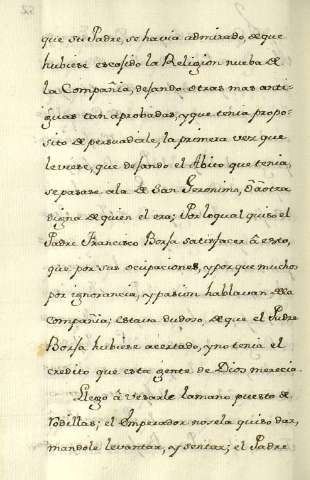 que su Padre, se havia admirado, de que
hubiese escojido la Religion nueba de
la Compañia, dejando otras mas anti-
guas tan aprobadas, y que tenia propo-
sito de persuadirle, la primera vez que
leviese, que dejando el Abito que tenia,
se pasase ala de San Geronimo, ô a otra
digna de quien el era; Por lo qual quiso el
Padre Francisco Borja satisfacer â esto,
que por sus ocupaciones, y porque muchos
por ignorancia, y pasion hablavan dela
compañia; estava dudoso, de que el Padre
Borja hubiese acertado, y no tenia el
credito que esta gente de Dios merecia.
Llego â vesarle lamano puesto de
rodillas; el Emperador nosela quiso dar,
mandole levantar, y sentar; el Padre